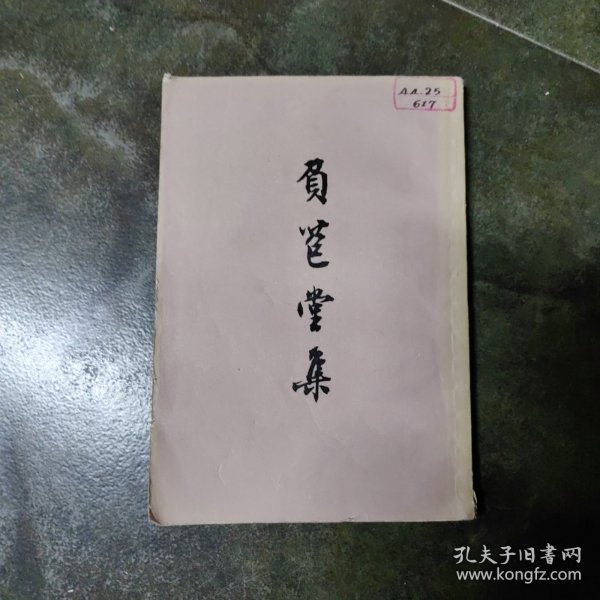 AA.25
617
負苞堂集
孔夫子旧書网
www.kongfz.com